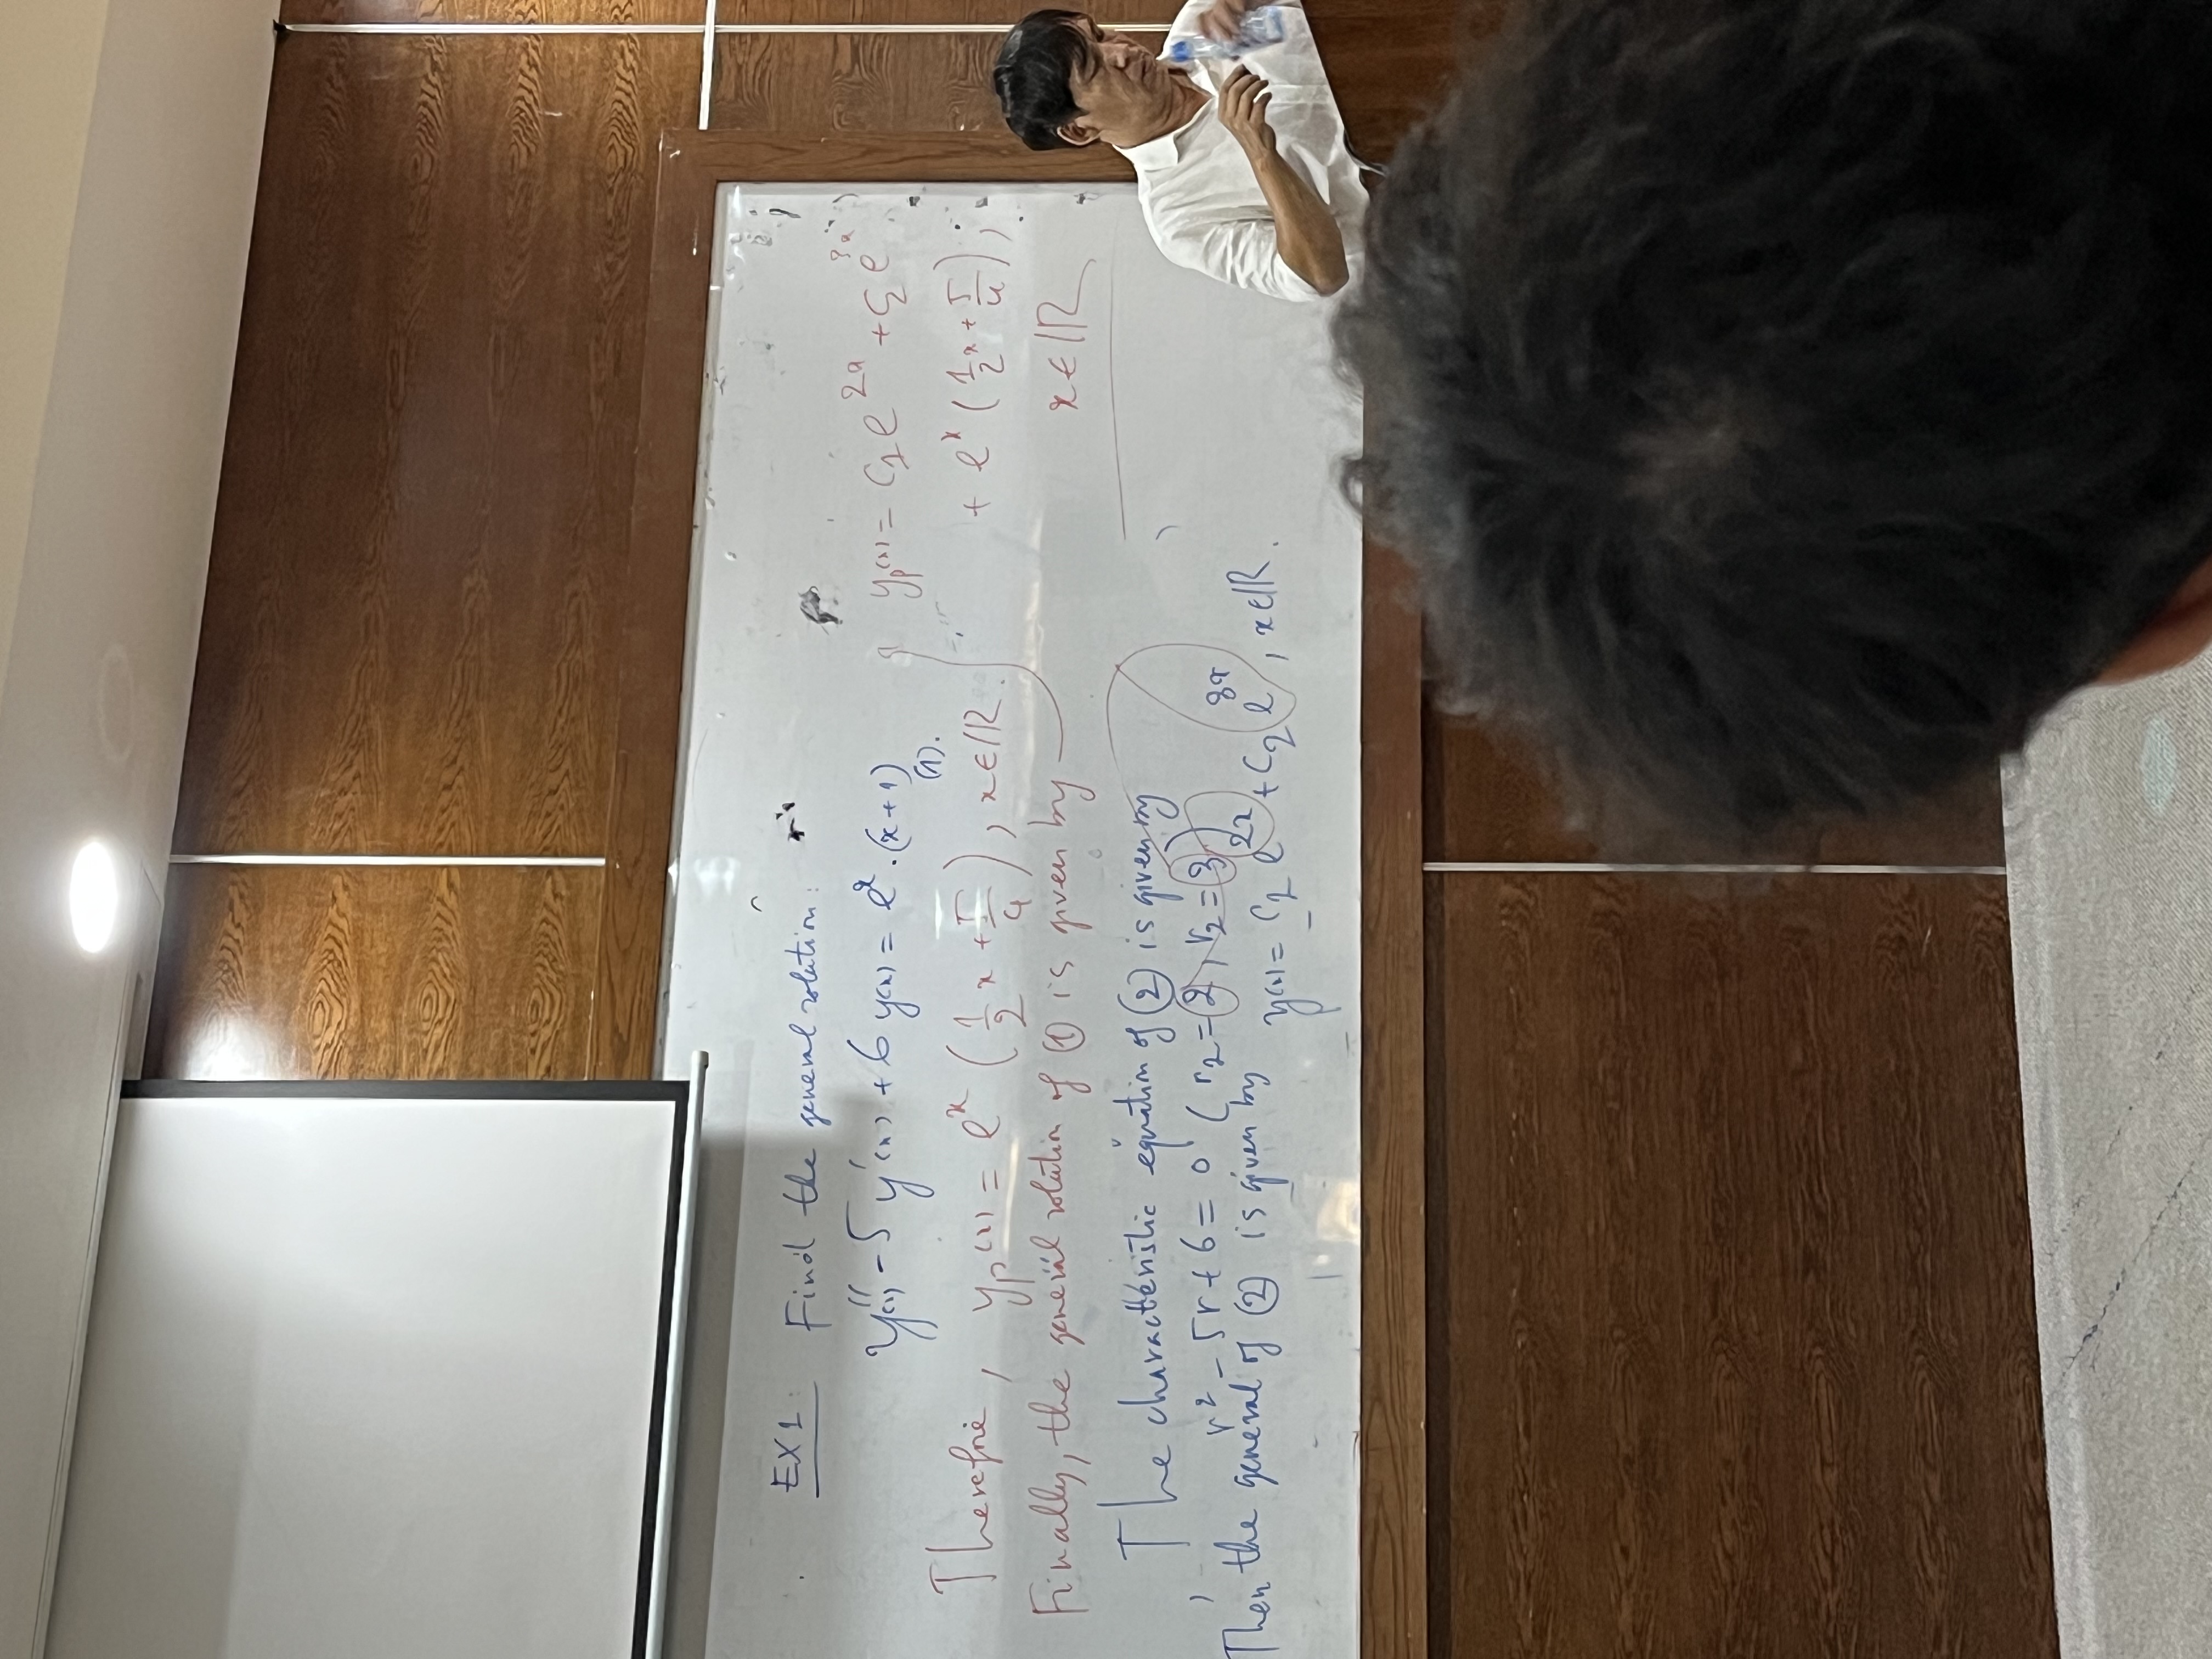 EX1: Find the general solution:
y''(x) - 5 y'(x) + 6 y(x) = e^x . (x + 1)
(1).
Therefore, y_p(x) = e^x (1/2 x + 5/4), x ∈ ℝ.
Finally, the general solution of ① is given by
y_p(x) = C_1 e^{2x} + C_2 e^{3x}
+ e^x (1/2 x + 5/4),
x ∈ ℝ
The characteristic equation of ② is given by
r² - 5r + 6 = 0 (r_2 = 2, r_2 = 3)
Then the general of ② is given by y(x) = C_2 e^{2x} + C_2 e^{3x}, x ∈ ℝ.